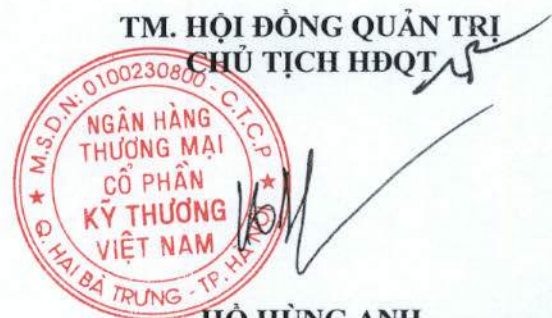 TM. HỘI ĐỒNG QUẢN TRỊ
CHỦ TỊCH HĐQT
M.S.D.N: 0100230800 - C.T.C.P
NGÂN HÀNG
THƯƠNG MẠI
CỔ PHẦN
KỸ THƯƠNG
VIỆT NAM
Q. HAI BÀ TRƯNG - TP. HÀ NỘI
HỒ HÙNG ANH